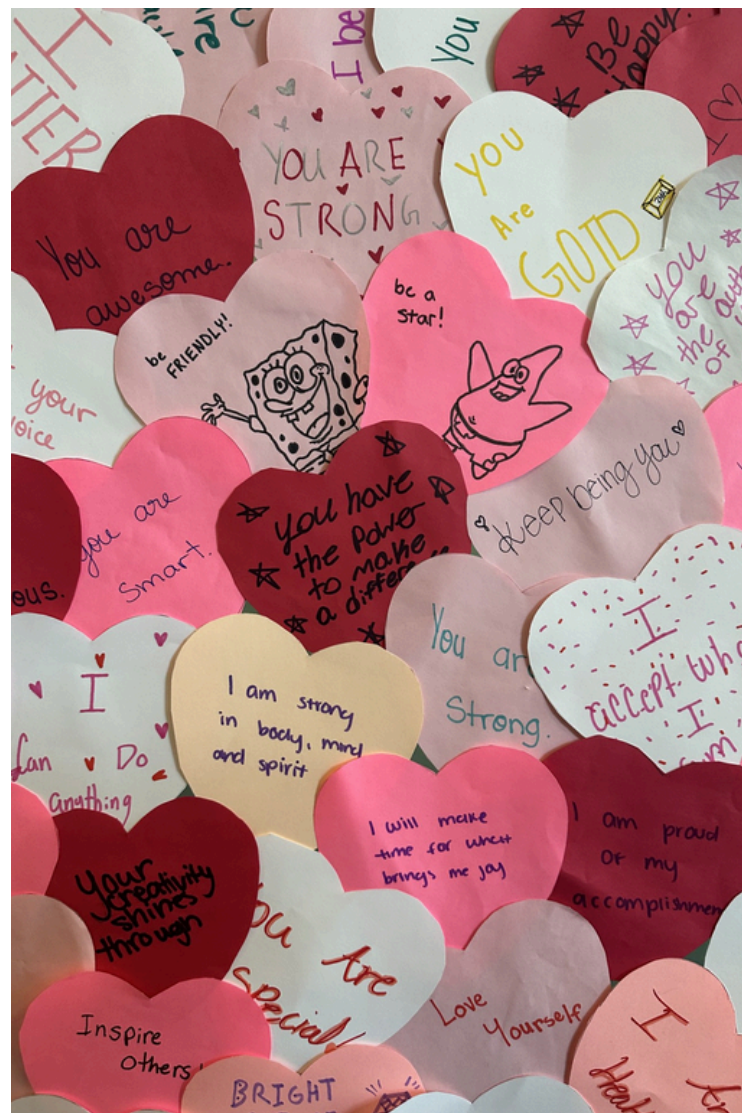 I
ATTER
I be
You
Be
Happy.
I
YOU ARE
STRONG
You
Are
GOlD
You are
awesome.
be
FRIENDLY!
be a
star!
you
are
the
of
your
voice
you are
smart.
ous.
you have
the power
to make
a differe
Keep being you
You ar
Strong.
I
accept who
I
am
I
Can Do
anything
I am strong
in body, mind
and spirit
I will make
time for what
brings me joy
I am proud
of my
accomplishmen
Your
creativity
shines
through
You Are
Special!
Love
Yourself
Inspire
Others!
I Am
BRIGHT